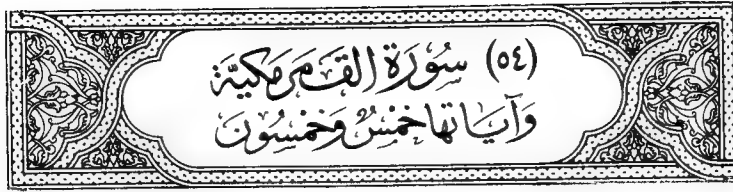 (٥٤) سُورَة القَمَر مَكيَّة
وَآيَاتها خَمْسٌ وَخَمْسُونَ